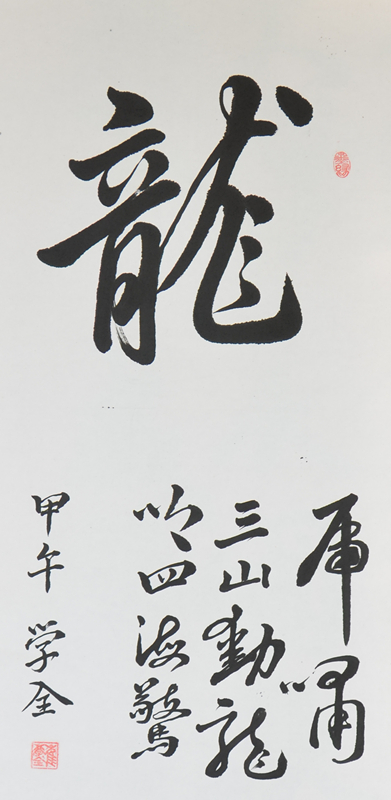 龍
虎嘯
三山動龍
吟四海驚
甲午 学全